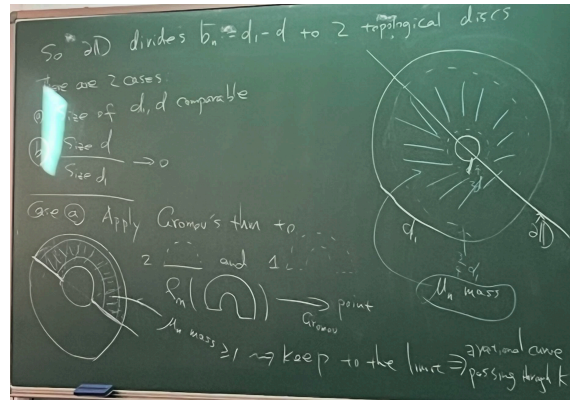 So ∂D divides b_n = d_1 - d to 2 topological discs
There are 2 cases:
(a) size of d_1, d comparable
(b) size d / size d_1 → 0
Case (a) Apply Gromov's thm to
2 and 1
f_n( ) → point
Gromov
μ_n mass ≥ 1 ⇝ keep to the limit ⇒ a rational curve
passing through K
d
d_1
∂D
μ_n mass